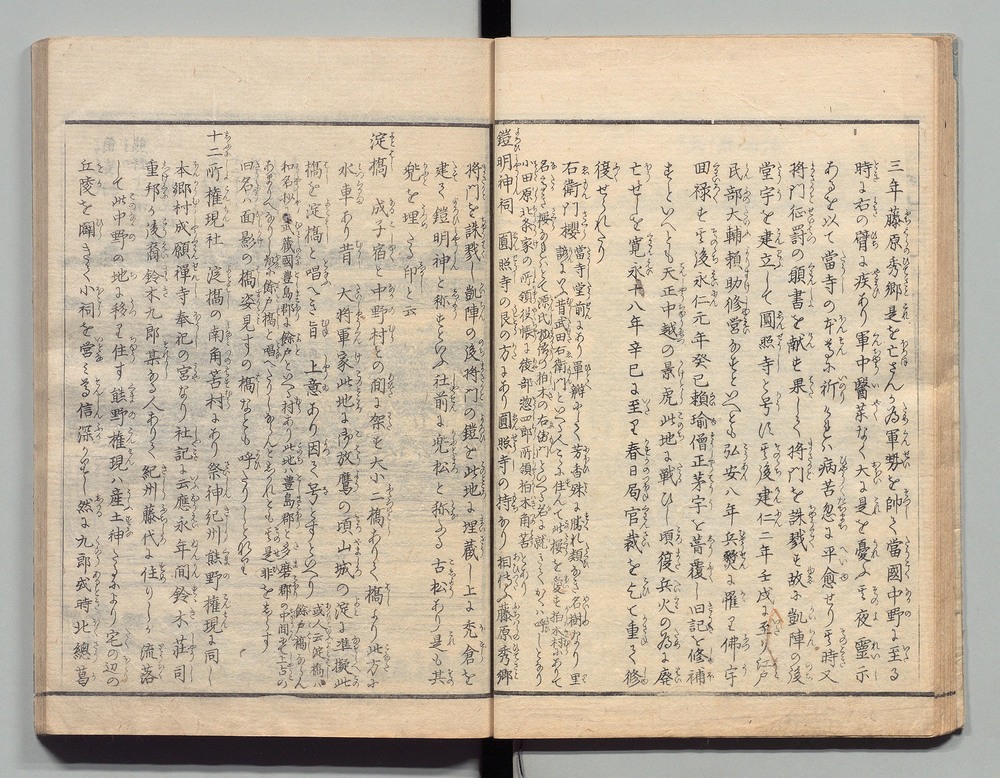 三年藤原秀郷是を亡さん為軍勢を帥て當國中野に至る
時に右の臂に疾あり軍中醫藥なく大に是を憂ふ其夜靈示
あるを以て當寺の本尊に祈りしかは病苦忽に平愈せり其時又
将門征罰の願書を献す果して将門を誅戮す故に凱陣の後
堂宇を建立して圓照寺と号に其後建仁二年壬戌に至り江戸
民部大輔頼助修営をなすといへとも弘安八年兵燹に罹て佛宇
回禄せ其後永仁元年癸巳頼瑜僧正茅宇を葺覆し旧記を修補
すといへとも天正中越の景虎此地に戦ひし頃復兵火の為に廃
亡せしを寛永十八年辛巳に至て春日局官裁を乞て重て修
復せられたり
右衛門櫻 當寺堂前にあり單瓣にして芳香殊に勝れ類なき名樹なり里
諺に昔武田右衛門といへる人こゝに住て此櫻を愛す柏木村にありて
名さへ
小田原北条家の所領役帳に後部惣四郎所領柏木角筈
鎧明神祠 圓照寺の艮の方にあり圓照寺の持なり相傳ふ藤原秀郷
将門を誅戮し凱陣の後将門の鎧を此地に埋蔵し上に禿倉を
建て鎧明神と称すといふ社前に兜松と称する古松あり是も其
兜を埋たる印と云
淀橋 成子宿と中野村との間に架す大小二橋ありて橋より此方に
水車あり昔 大将軍家此地に御放鷹の頃山城の淀に準擬し此
橋を淀橋と唱へき旨 上意あり因て号とすといへり 或人云淀橋は餘戸橋ならん
和名抄に武蔵國豊島郡に餘戸といへる村あり此地は豊島郡と多磨郡の中間にて上古の
旧名は面影の橋姿見すの橋なとも呼たりしとそ
十二所権現社 淀橋の南角筈村にあり祭神紀州熊野権現に同し
本郷村成願禅寺奉祀の宮なり社記に云應永年間鈴木荘司
重邦か後裔鈴木九郎某なる人ありて紀州藤代に住りしか流落
して此中野の地に移り住す熊野権現は産土神たるにより宅の辺の
丘陵を闢きて小祠を営み尊信深かりし然に九郎或時北總葛